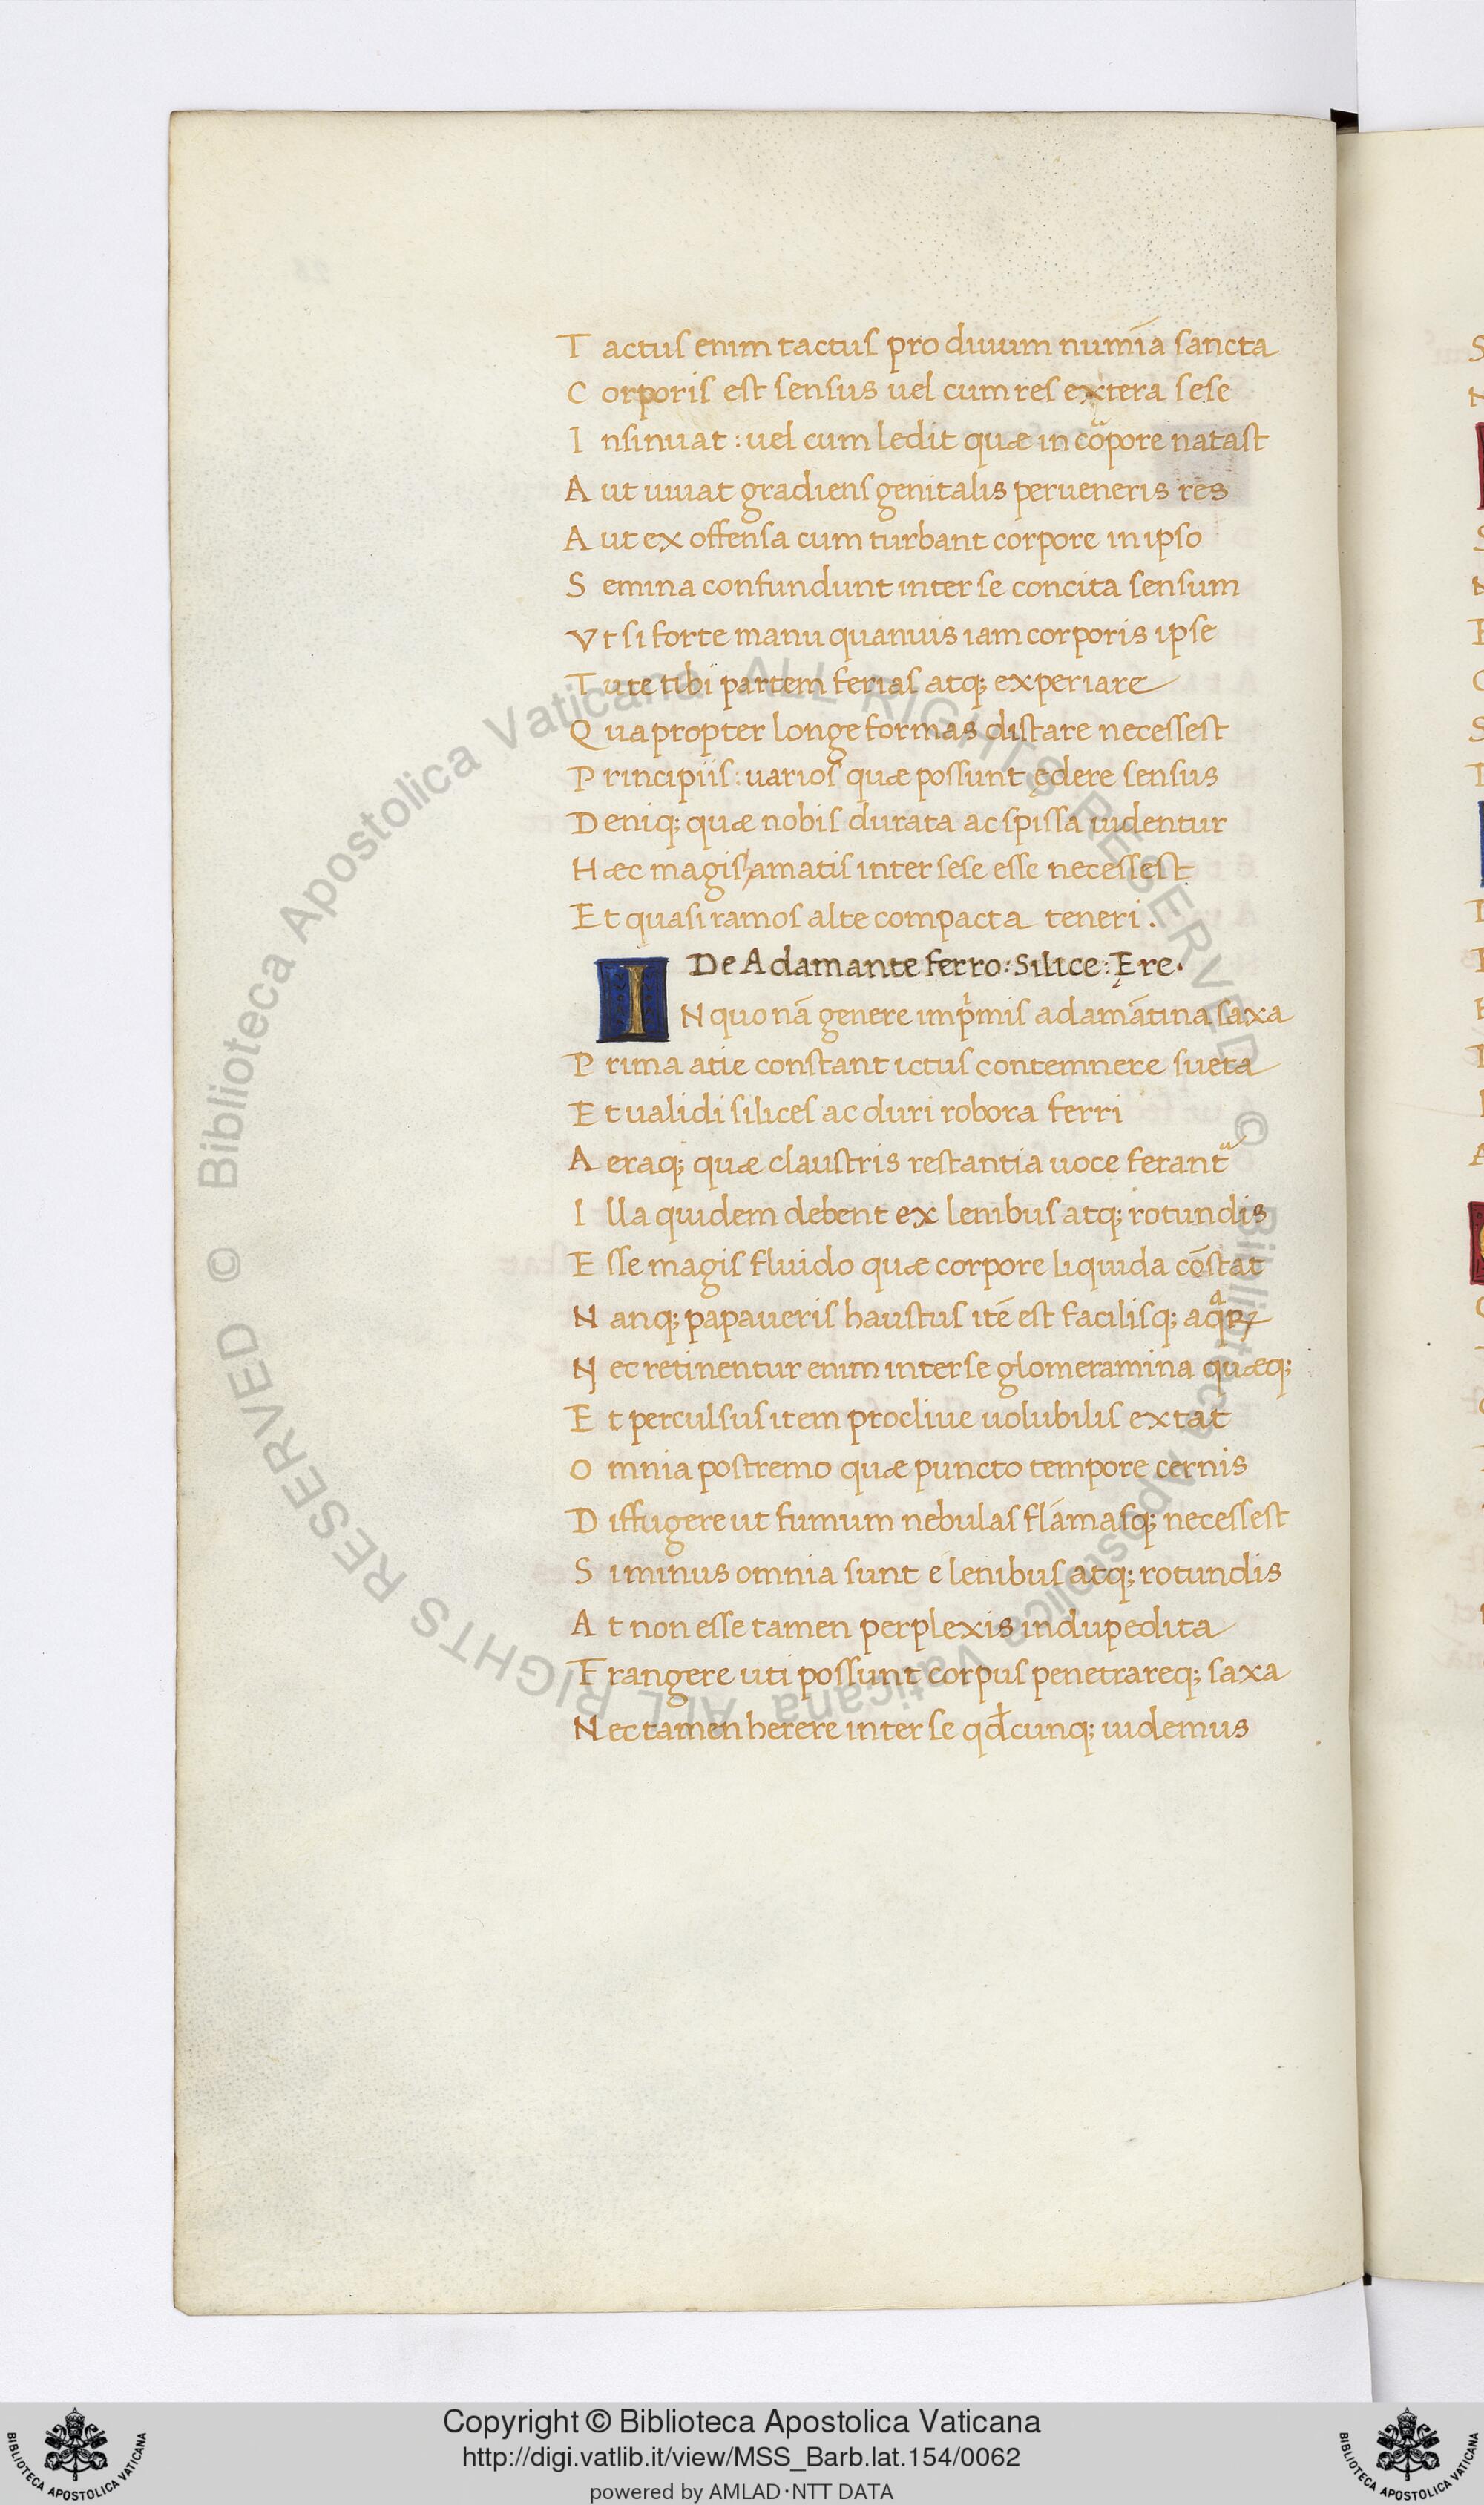 Tactus enim tactus pro diuum numīa sancta
Corporis est sensus uel cum res extera sese
Insinuat : uel cum ledit quæ in cōpore natast
Aut iuuat gradiens genitalis per ueneris res
Aut ex offensa cum turbant corpore in ipso
Semina confundunt inter se concita sensum
Vt si forte manu quamuis iam corporis ipse
Tute tibi partem ferias atq; experiare
Quapropter longe formas distare necessest
Principiis : uarios quæ possunt ędere sensus
Deniq; quæ nobis durata ac spissa uidentur
Hæc magis amatis inter sese esse necessest
Et quasi ramos alte compacta teneri .
De Adamante ferro : Silice : Ęre .
IN quo nā genere imp'mis adamātina saxa
Prima atie constant ictus contemnere sueta
Et ualidi silices ac duri robora ferri
Aeraq; quæ claustris restantia uoce ferant
Illa quidem debent ex lenibus atq; rotundis
Esse magis fluido quæ corpore liquida cōstat
Nanq; papaueris haustus itē est facilisq; aqꝝ
Nec retinentur enim inter se glomeramina quæq;
Et perculsus item procliue uolubilis extat
Omnia postremo quæ puncto tempore cernis
Diffugere ut fumum nebulas flāmasq; necessest
Si minus omnia sunt e lenibus atq; rotundis
At non esse tamen perplexis indupedita
Frangere uti possunt corpus penetrareq; saxa
Nec tamen herere inter se qđcunq; uidemus
© Biblioteca Apostolica Vaticana ALL RIGHTS RESERVED
© Biblioteca Apostolica Vaticana ALL RIGHTS RESERVED
Copyright © Biblioteca Apostolica Vaticana
http://digi.vatlib.it/view/MSS_Barb.lat.154/0062
powered by AMLAD·NTT DATA
BIBLIOTECA APOSTOLICA VATICANA
BIBLIOTECA APOSTOLICA VATICANA